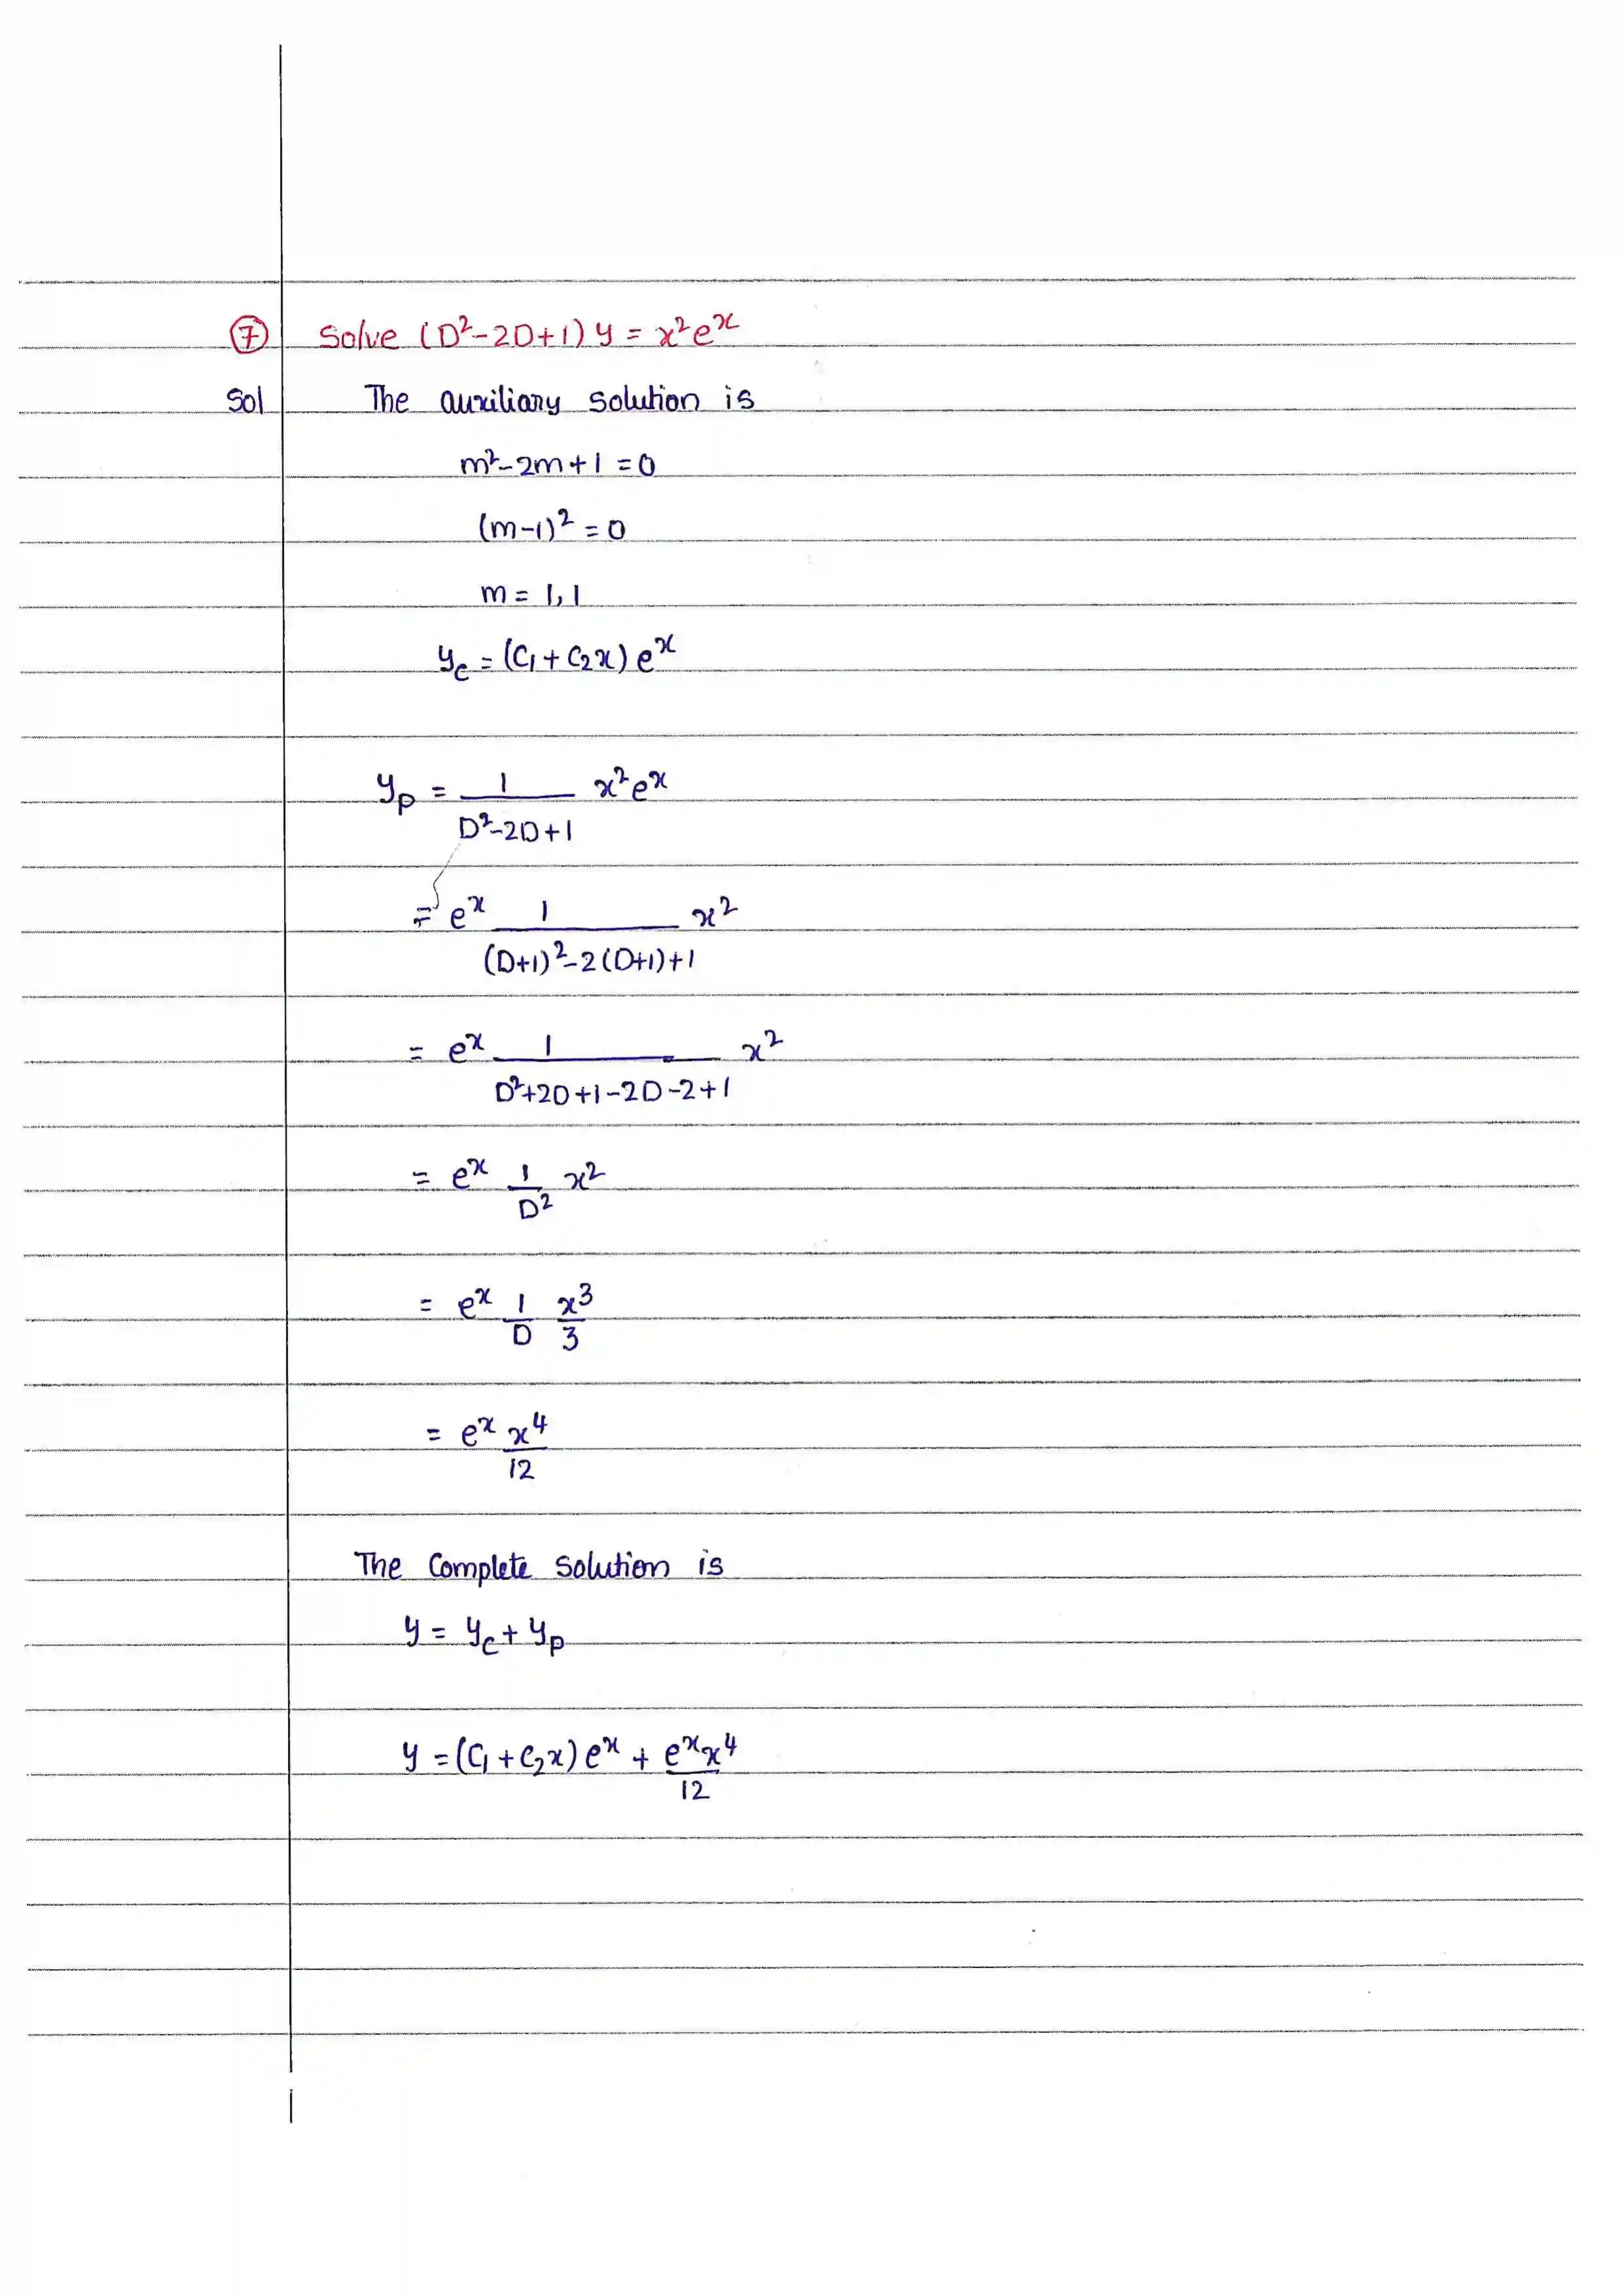 ⑦ Solve (D²-2D+1) y = x²eˣ
Sol The auxiliary solution is
m²-2m+1 = 0
(m-1)² = 0
m = 1, 1
y_c = (C₁ + C₂x) eˣ
y_p = 1/(D²-2D+1) x²eˣ
= eˣ 1/((D+1)²-2(D+1)+1) x²
= eˣ 1/(D²+2D+1-2D-2+1) x²
= eˣ 1/D² x²
= eˣ 1/D x³/3
= eˣ x⁴/12
The Complete Solution is
y = y_c + y_p
y = (C₁ + C₂x) eˣ + eˣx⁴/12